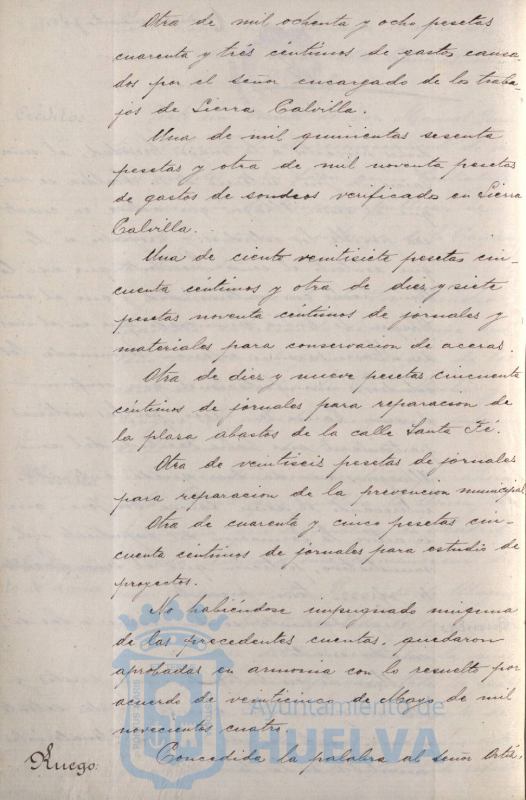 Otra de mil ochenta y ocho pesetas
cuarenta y trés céntimos de gastos causa-
dos por el señor encargado de los traba-
jos de Sierra Calvilla.
Una de mil quinientas sesenta
pesetas y otra de mil noventa pesetas
de gastos de sondeos verificados en Sierra
Calvilla.
Una de ciento veintisiete pesetas cin-
cuenta céntimos y otra de diez y siete
pesetas noventa céntimos de jornales y
materiales para conservacion de aceras.
Otra de diez y nueve pesetas cincuenta
céntimos de jornales para reparacion de
la plaza abastos de la calle Santa Fé.
Otra de veintiseis pesetas de jornales
para reparacion de la prevencion municipal
Otra de cuarenta y cinco pesetas cin-
cuenta céntimos de jornales para estudio de
proyectos.
No habiéndose impugnado ninguna
de las precedentes cuentas, quedaron
aprobadas en armonia con lo resuelto por
acuerdo de veinticinco de Mayo de mil
novecientos cuatro.
Ayuntamiento de
HUELVA
Ruego. Concedida la palabra al señor